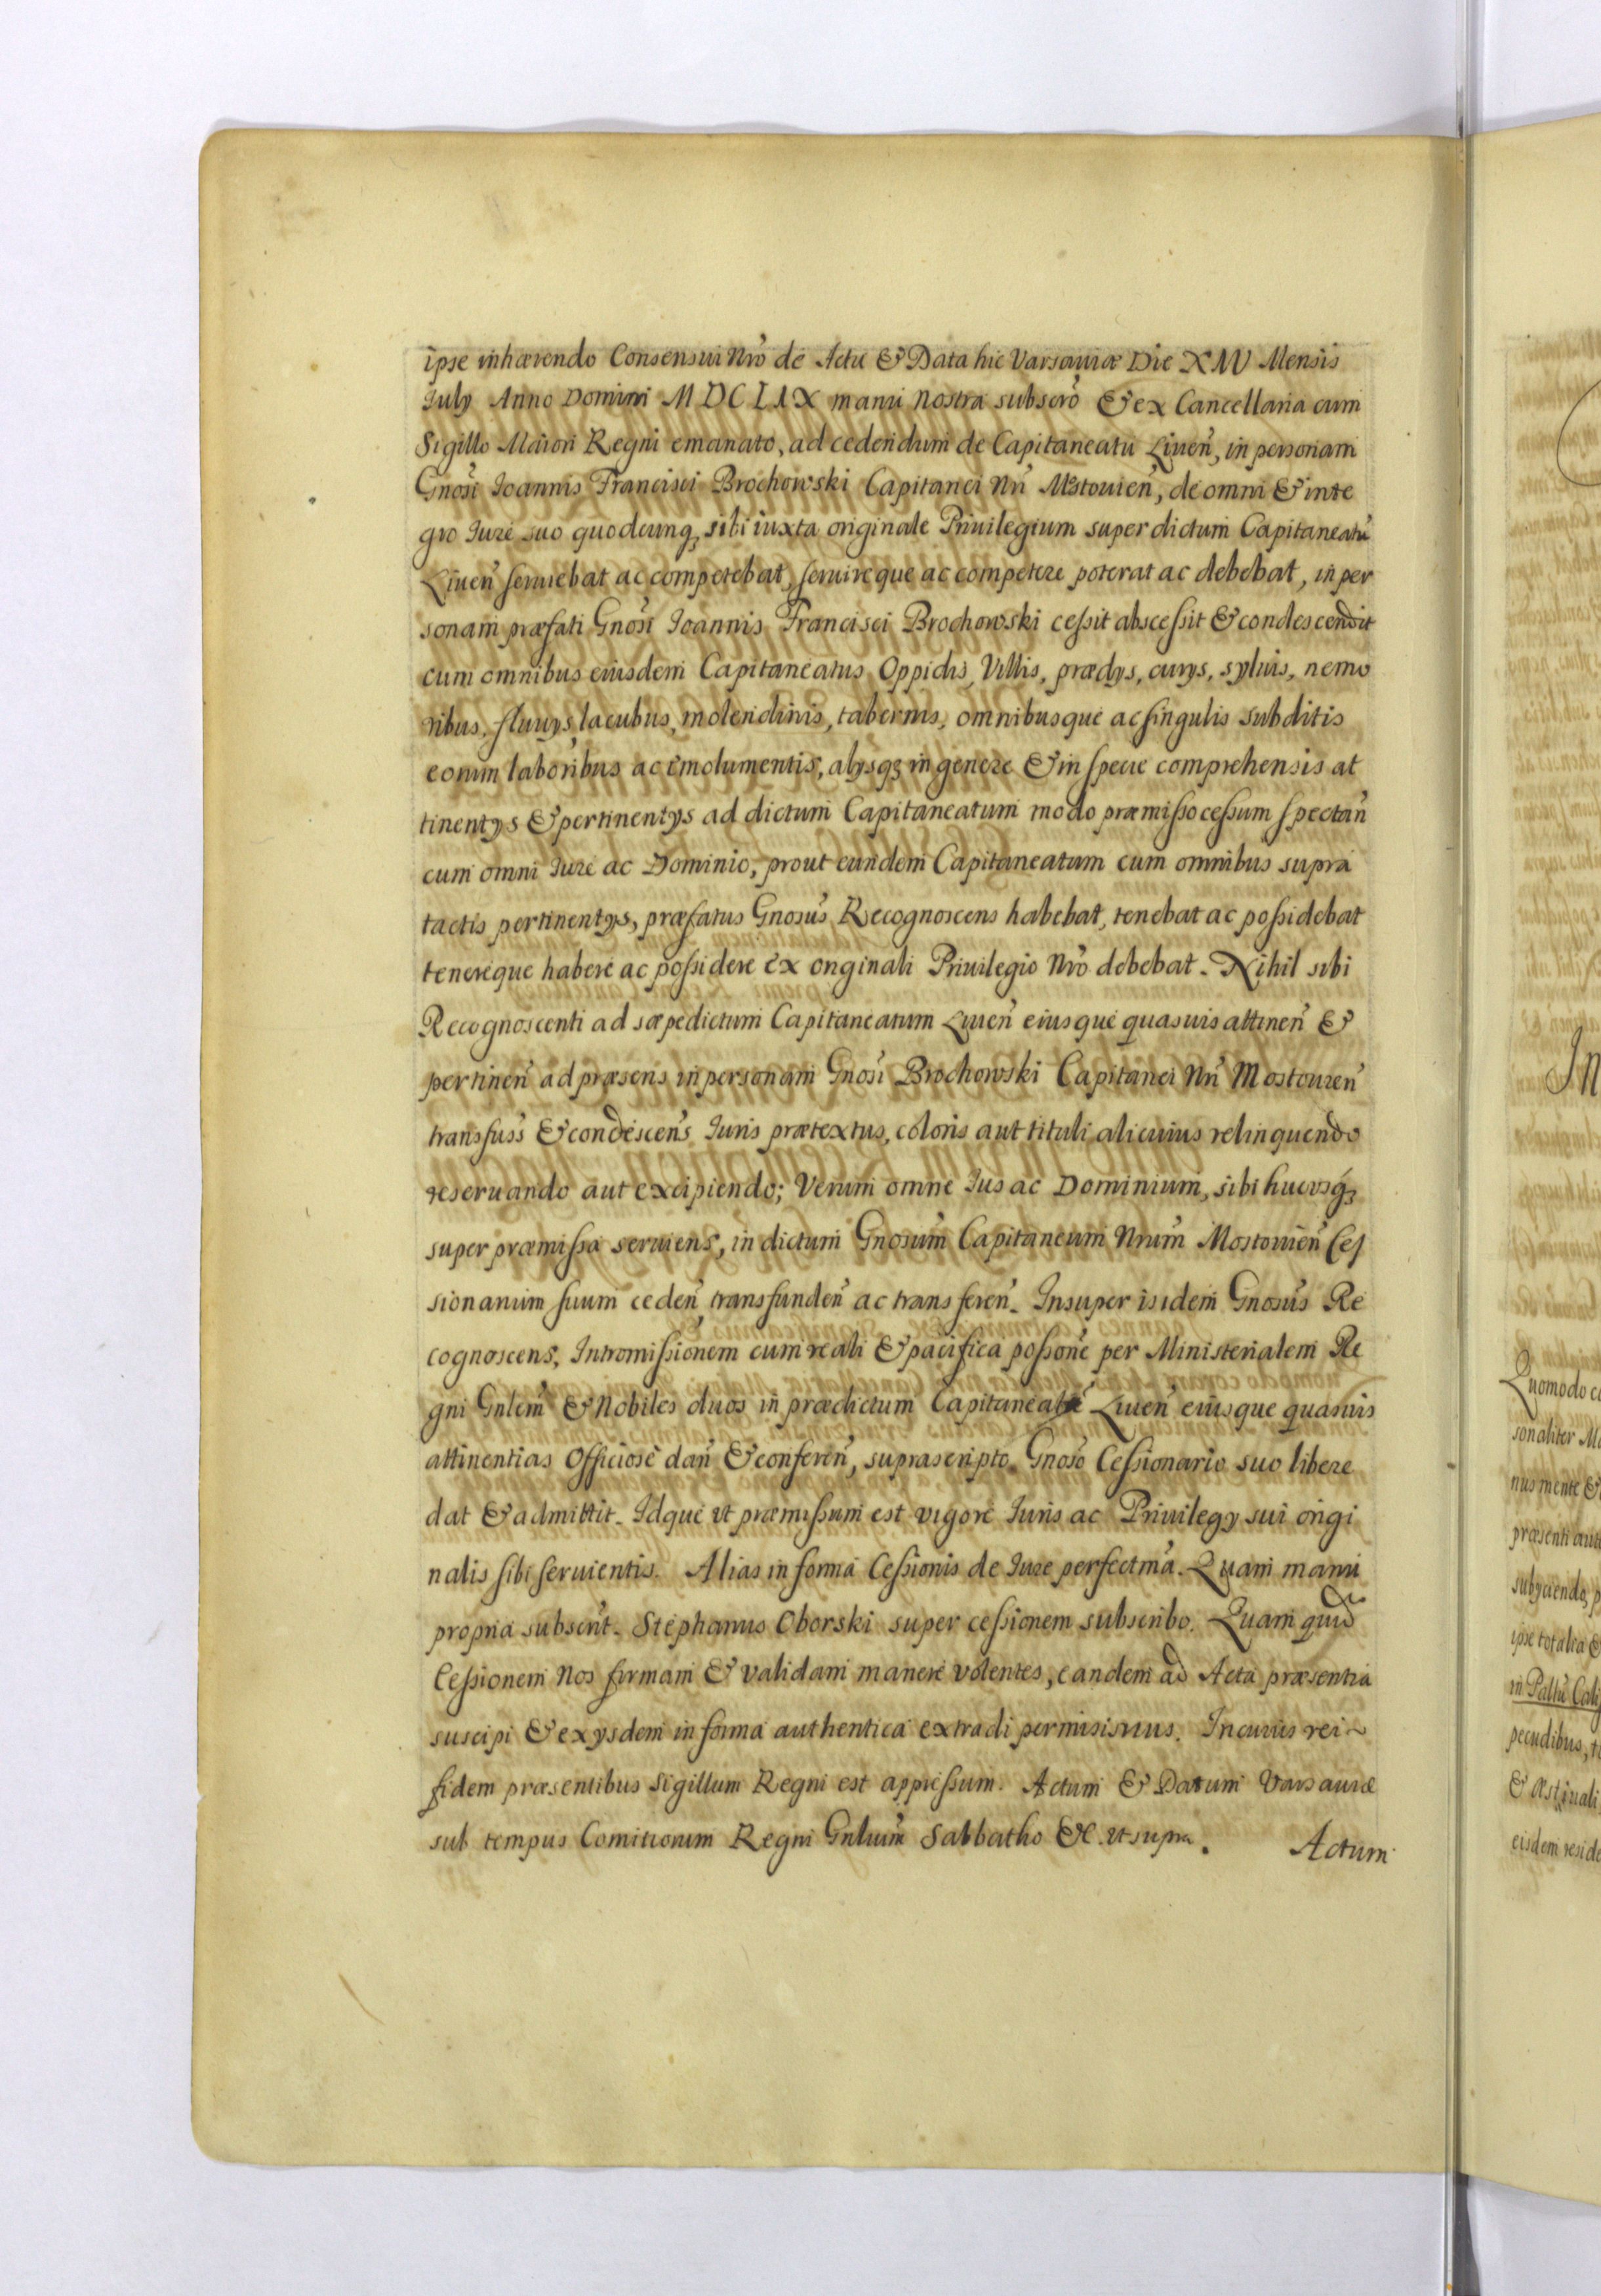 ipse inhærendo Consensui Nrõ de Actu & Data hic Varsauiæ Die XXIV Mensis
July Anno Domini MDCLIX manu nostra subscrõ & ex Cancellaria cum
Sigillo Maiori Regni emanato, ad cedendum de Capitaneatu Liueñ, in personam
Gnosi Joannis Francisci Brochowski Capitanei Nri Mstouieñ, de omni & inte
gro Jure suo quodcunq3 sibi iuxta originale Priuilegium super dictum Capitaneatũ
Liueñ seruiebat ac competebat, seruireque ac competere poterat ac debebat, in per
sonam præfati Gnosi Joannis Francisci Brochowski cessit abscessit & condescendit
cum omnibus eiusdem Capitaneatus Oppidis, Villis, prædys, curys, syluis, nemo
ribus, fluuys, lacubus, molendinis, tabernis, omnibusque ac singulis subditis
eorum laboribus ac emolumentis, alysq3 in genere & in specie comprehensis at
tinentys & pertinentys ad dictum Capitaneatum modo præmisso cessum spectañ
cum omni Jure ac Dominio, prout eundem Capitaneatum cum omnibus supra
tactis pertinentys, præfatus Gnosus Recognoscens habebat, tenebat ac possidebat
tenereque habere ac possidere ex originali Priuilegio Nrõ debebat. Nihil sibi
Recognoscenti ad sæpedictum Capitaneatum Liueñ eiusque quasuis attineñ &
pertineñ ad præsens in personam Gnosi Brochowski Capitanei Nri Mostouieñ
transfuss & condescens Juris prætextus, coloris aut tituli alicuius relinquendo
reseruando aut excipiendo; Verum omne Jus ac Dominium, sibi hucusq3
super præmissa seruiens, in dictum Gnosum Capitaneum Nrum Mostouieñ Ces
sionarium suum cedeñ transfundeñ ac transfereñ. Insuper isidem Gnosus Re
cognoscens, Intromissionem cum reali & pacifica possone per Ministerialem Re
gni Gnlem & Nobiles duos in prædictum Capitaneatũ Liueñ eiusque quasuis
attinentias Officiose dañ & confereñ, suprascripto Gnoso Cessionario suo libere
dat & admittit. Idque ut præmissum est vigore Juris ac Priuilegy sui origi
nalis sibi seruientis. Alias in forma Cessionis de Jure perfectma. Quam manu
propria subscrit. Stephanus Oborski super cessionem subscribo. Quam quid
Cessionem Nos firmam & validam manere volentes, eandem ad Acta præsentia
suscipi & ex ysdem in forma authentica extradi permisimus. In cuius rei ~
fidem præsentibus Sigillum Regni est appressum. Actum & Datum Varsauiæ
sub tempus Comitiorum Regni Gnlium Sabbatho &c. ut supra.
Actum
Quomodo
sonaliter
nus mente &
præsenti
subyciendo,
ipse totalia &
pecudibus,
eisdem